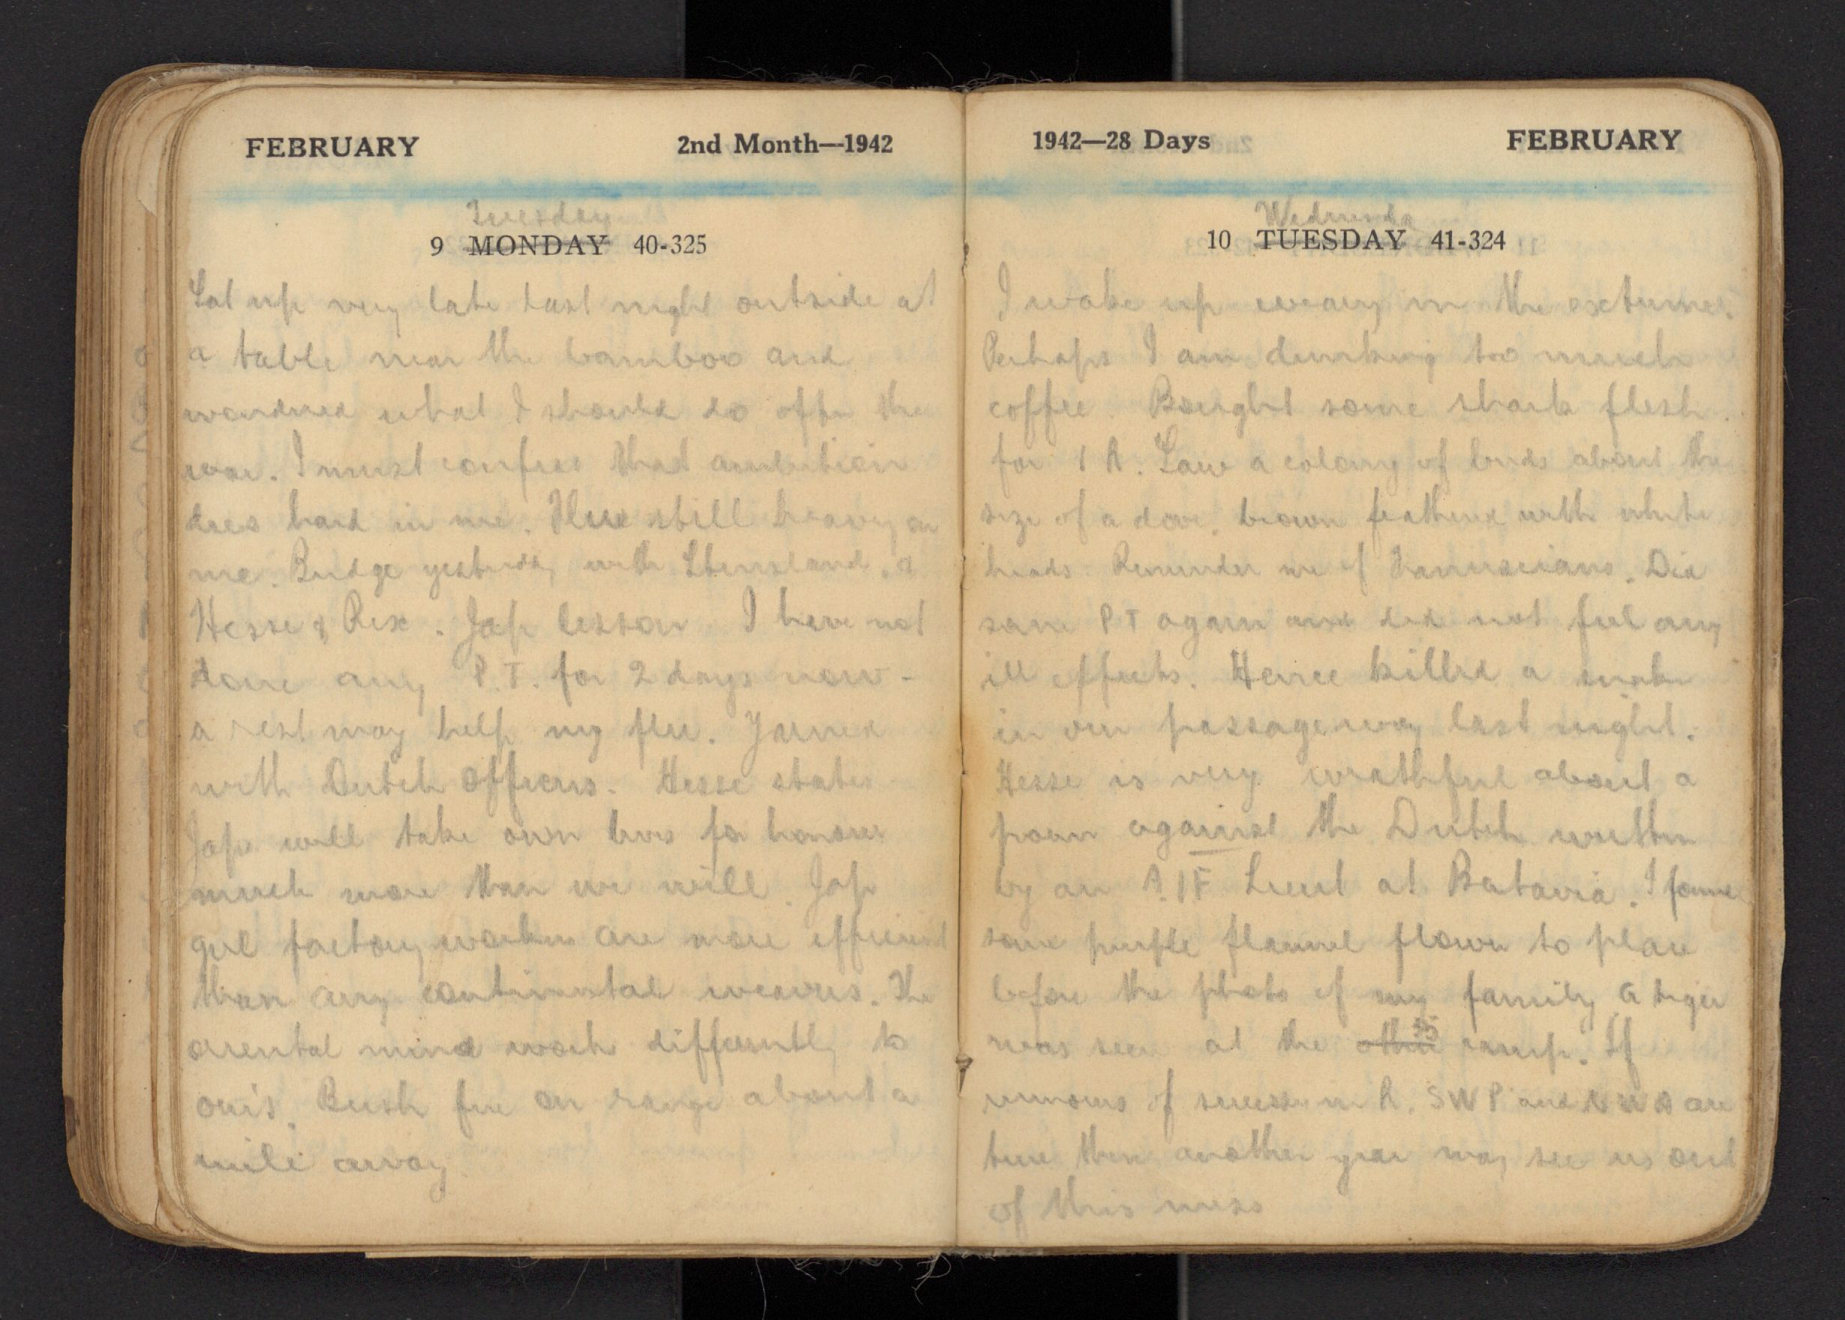 FEBRUARY 2nd Month—1942
Tuesday
9 MONDAY 40-325
Sat up very late last night outside at
a table near the bamboo and
wondered what I should do after the
war. I must confess that ambition
dies hard in me. Flue still heavy on
me. Bridge yesterday with Stensland, a
Hesse & Rex. Jap lesson I have not
done any P.T. for 2 days now -
a rest may help my flue. Yarned
with Dutch Officers. Hesse states
Japs will take own lives for honour
much more than we will. Jap
girl factory workers are more efficient
than any continental weavers. The
oriental mind work differently to
ours. Bush fire on range about a
mile away.
1942—28 Days FEBRUARY
Wednesda
10 TUESDAY 41-324
I wake up weary in the extreme.
Perhaps I am drinking too much
coffee. Bought some shark flesh
for 1 R. Saw a colony of birds about the
size of a dove, brown feathered with white
heads. Reminder me of Franciscians. Did
some PT again and did not feel any
ill effects. Hence killed a snake
in our passageway last night.
Hesse is very wrathful about a
poem against the Dutch written
by an A.I.F Lieut at Batavia. I found
some purple flannel flower to place
before the photo of my family. A tiger
was seen at the other 55 camp. If
rumours of success in R. SWP and are
true then another year may see us out
of this mess